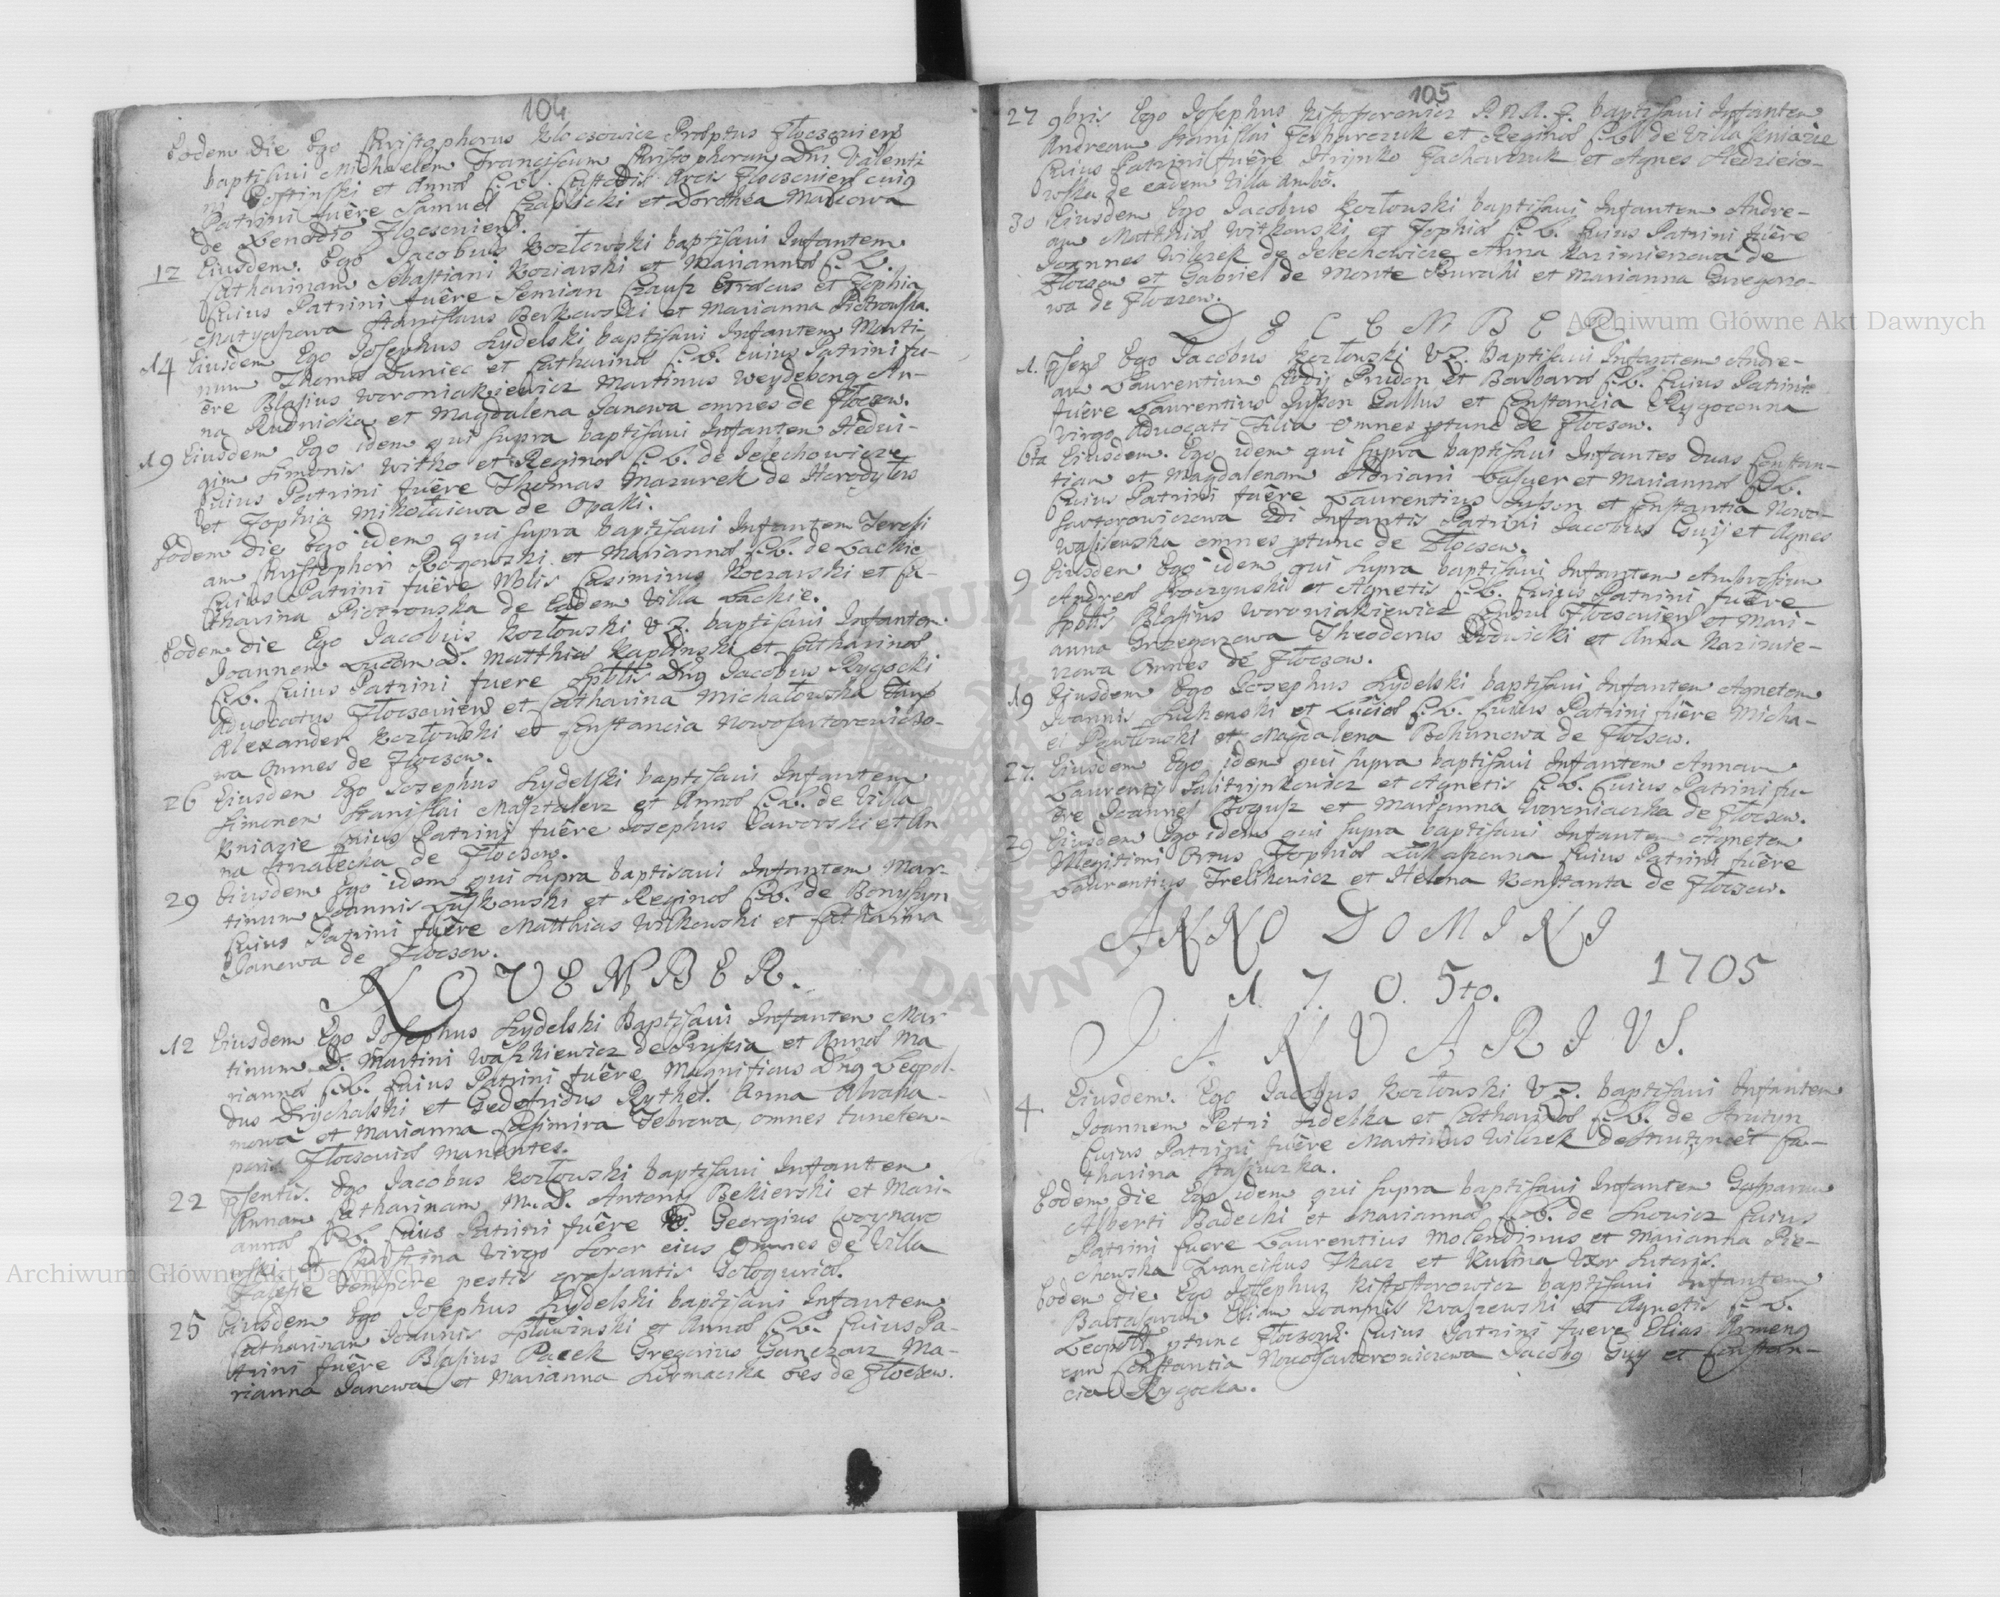 104
Eodem die Ego Christophorus Kłoczowicz Prĕptus Złoczoviens
baptisavi Michaelem Franciscum Christophorum Dni Valenti
ni et Annæ C. L. Custodis Arcis Złoczoviens cuius
Patrini fuêre Samuel Czaplicki et Dorothea Malcowa
de Złoczoviens.
12 Eiusdem. Ego Jacobus Kozłowski baptisavi Infantem
Catharinam Sebastiani Koziarski et Mariannæ C. L.
Cuius Patrini fuêre Semian et Zophia
Matyaszowa Stanislaus Berkowski et Marianna Piotrowska.
14 Eiusdem Ego Josephus Lydelski baptisavi Infantem Marti-
num Thomæ Duniec et Catharinæ C. L. cuius Patrini fu-
êre Blasius Woroniakiewicz Martinus An-
na Rudnicka et Magdalena Janowa omnes de Złoczow.
19 Eiusdem Ego idem qui supra baptisavi Infantem Hedvi-
gim Simonis Witko et Reginæ C. L. de Jelechowicze
Cuius Patrini fuêre Thomas Mazurek de
et Zophia Mikołaiowa de Opaki.
Eodem die Ego idem qui supra baptisavi Infantem Teresi
am Christophori Rogowski et Mariannæ C. L. de Lackie
Cuius Patrini fuêre Nblis Casimirus Koczarski et Ca-
tharina Piotrowska de Eadem Villa Lackie.
Eodem die Ego Jacobus Kozłowski V Z. baptisavi Infantem
Joannem Lucam D. Matthiæ Kaplinski et Catharinæ
C. L. Cuius Patrini fuere Spblis Dnus Jacobus Rygocki
Advocatus Złoczoviens et Catharina Michałowska
Alexander Kozłowski et Constancia Nowosutorowiczo-
wa omnes de Złoczow.
26 Eiusdem Ego Josephus Lydelski baptisavi Infantem
Simonem Stanislai Masztalerz et Annæ C. L. de Villa
Kniazie cuius Patrini fuêre Josephus Jaworski et An
na de Złoczow.
29 Eiusdem Ego idem qui supra baptisavi Infantem Mar-
tinum Joannis et Reginæ C. L. de Bonyszyn
Cuius Patrini fuêre Matthias Witkowski et Catharina
Janowa de Złoczow.
NOVEMBER.
12 Eiusdem Ego Josephus Lydelski Baptisavi Infantem Mar
tinum D. Martini Waszkiewicz de et Annæ Ma
riannæ C. L. Cuius Patrini fuêre Magnificus Dnus Leopol-
dus Drychalski et Gedefridus Rythel. Anna Abraha-
mowa et Marianna Casimira Febrowa, omnes tunctem-
poris Złoczoviæ manentes.
22 pñsentis. Ego Jacobus Kozłowski baptisavi Infantem
Annam Catharinam M. D. Antonij Bekierski et Mari-
annæ C. L. Cuius Patrini fuêre Georgius Woynarow
ski et Christina Virgo Soror eius Omnes de Villa
Zalesie tempore pestis grassantis Gologuriæ.
25 Eiusdem Ego Josephus Lydelski baptisavi Infantem
Catharinam Joannis Spławinski et Annæ C. L. Cuius Pa-
trini fuêre Blasius Pacek Gregorius Ganczarz Ma-
rianna Janowa et Marianna oes de Złoczow.
105
27 9bris Ego Josephus Kistosorowicz P. N. A. Z. baptisavi Infantem
Andream Stanislai Zacharczuk et Reginæ C. L. de Villa Kniazie
Cuius Patrini fuêre Hrynko Zacharczuk et Agnes
wska de eadem Villa ambo.
30 Eiusdem Ego Jacobus Kozłowski baptisavi Infantem Andre-
am Matthiæ Witkowski, et Zophiæ C. L. Cuius Patrini fuêre
Joannes Wilczek de Jelechowicze Anna Kazimierzowa de
Złoczow et Gabriel de Monte et Marianna Grzegorzo-
wa de Złoczow.
DECEMBER
1. pñsens Ego Jacobus Kozłowski V Z. Baptisavi Infantem Andre-
am Laurentium Prudon et Barbaræ C. L. Cuius Patrini
fuêre Laurentius Juszon Gallus et Constancia Rygocouna
Virgo Advocati Filia Omnes ptunc de Złoczow.
6ta Eiusdem. Ego idem qui supra baptisavi Infantes duas Constan-
tiam et Magdalenam Adriani et Mariannæ C. L.
Cuius Patrini fuêre Laurentius Juszon et Constantia Nowo-
sutorowiczowa 2di Infantis Patrini Jacobus Guij et Agnes
Wasilewska omnes ptunc de Złoczow.
9 Eiusdem Ego idem qui supra baptisavi Infantem Ambrosium
Andreæ Broczynski et Agnetis C. L. Cuius Patrini fuêre
Spblis Blasius Woroniakiewicz Consul Złoczoviens et Mari-
anna Grzegorzowa Theodorus et Anna Kazimie-
rzowa Omnes de Złoczow.
19 Eiusdem Ego Josephus Lydelski baptisavi Infantem Agnetem
Joannis et Luciæ C. L. Cuius Patrini fuêre Micha-
el Pawłowski et Magdalena de Złoczow.
27. Eiusdem Ego idem qui supra baptisavi Infantem Annam
Laurentij Salitrynkowicz et Agnetis C. L. Cuius Patrini fu-
êre Joannes Bogusz et Marianna Woroniacka de Złoczow.
29 Eiusdem Ego idem qui supra baptisavi Infantem Agnetem
Illegitimi Ortus Zophiæ Cuius Patrini fuêre
Laurentius Trelikowicz et Helena Konstanta de Złoczow.
ANNO DOMINI
1. 7. 0. 5to. 1705
JANUARIUS.
4 Eiusdem. Ego Jacobus Kozłowski V Z. baptisavi Infantem
Joannem Petri et Catharinæ C. L. de Strutyn
Cuius Patrini fuêre Martinus Wilczek de Strutyn et Ca-
tharina Stasiuczka.
Eodem die Ego idem qui supra baptisavi Infantem Gasparum
Alberti Badecki et Mariannæ C. L. de Snowicz Cuius
Patrini fuere Laurentius Molendinus et Marianna Pie-
chowska Franciskus Tkacz et Kulina Uxor Sutoris.
Eodem die Ego Josephus Kistosorowicz baptisavi Infantem
Baltasarum Eliam Joannis Kraszewski et Agnetis C. L.
Leopold ptunc Cuius Patrini fuere Elias Armenus
cum Constantia Nowosutorowiczowa Jacobus Guy et Constan-
cia Rygocka.
Archiwum Główne Akt Dawnych
Archiwum Główne Akt Dawnych